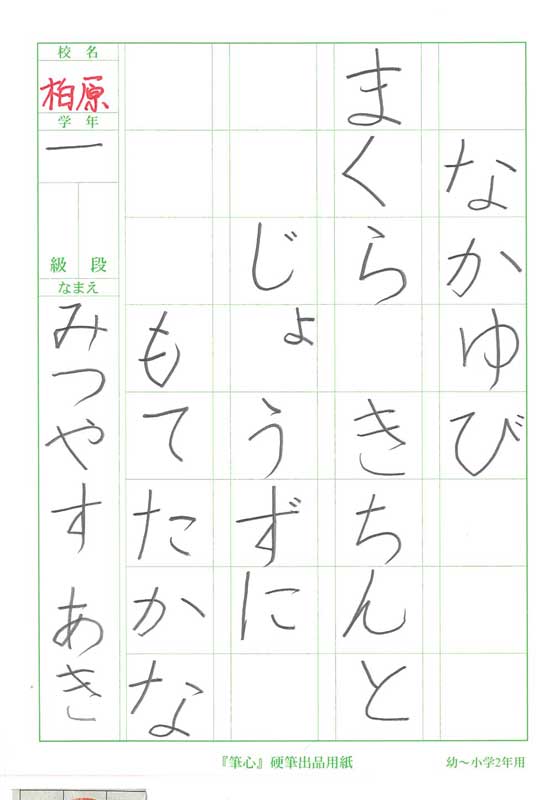 なかゆび
まくら きちんと
じょうずに
もてたかな
校名
柏原
学年
一
級 段
なまえ
みつやす あき
『筆心』硬筆出品用紙
幼～小学2年用